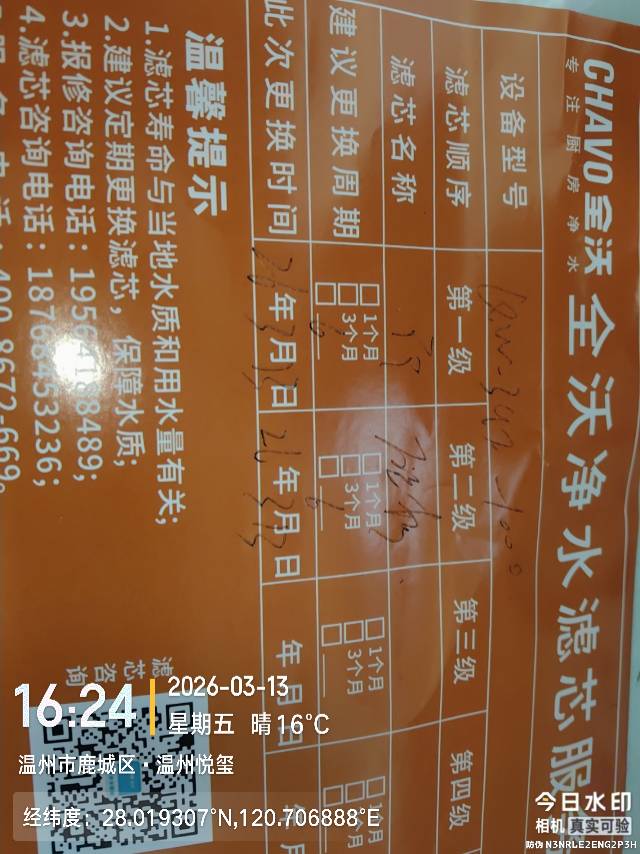 CHAVO全沃 全沃净水滤芯服
专注厨房净水
设备型号
滤芯顺序 第一级 第二级 第三级 第四级
滤芯名称
建议更换周期 1个月 3个月 6 1个月 3个月 6 1个月 3个月 1个月 3个月
此次更换时间 26年3月13日 26年3月13日 年 月 日 年 月
温馨提示
1.滤芯寿命与当地水质和用水量有关;
2.建议定期更换滤芯,保障水质;
3.报修咨询电话:
4.滤芯咨询电话:18768453236;
400-8672-669。
滤芯咨询
16:24
2026-03-13
星期五 晴 16°C
温州市鹿城区·温州悦玺
经纬度:28.019307°N,120.706888°E
今日水印
相机 真实可验
防伪 N3NRLE2ENG2P3H